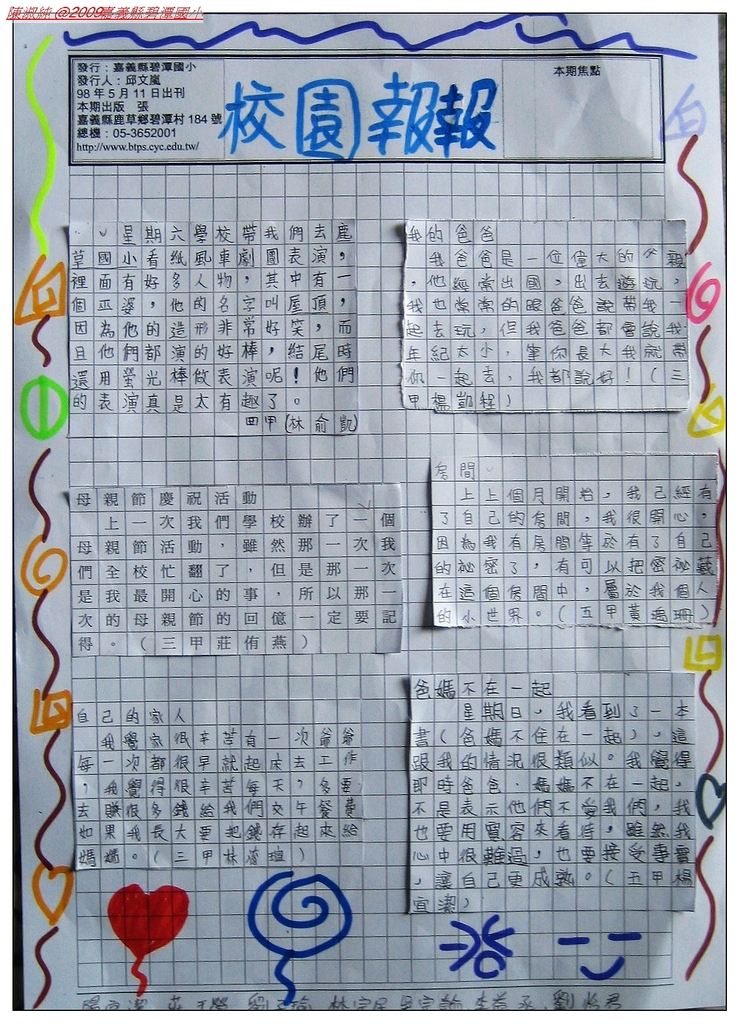 陳淑純 @2009嘉義縣碧潭國小
發行：嘉義縣碧潭國小
發行人：邱文嵐
98 年 5 月 11 日出刊
本期出版　張
嘉義縣鹿草鄉碧潭村 184 號
總機：05-3652001
http://www.btps.cyc.edu.tw/
校園報報
本期焦點
星期六學校帶我們去鹿
草國小看紙風車劇團表演，
裡面有好多人物，其中有一
個巫婆，他的名字叫屋頂，
因為他的造形非常好笑，而
且他們都演的好棒，結尾時
還用螢光棒做表演呢！他們
的表演真是太有趣了。
四甲(林俞凱)
母親節慶祝活動
上一次我們學校辦了一個
母親節活動，雖然那一次我
們全校忙翻了，但是那一次
是我最開心的事，所以那一
次的母親節的回億一定要記
得。（三甲莊侑燕）
自己的家人
我覺家很辛苦有一次爺爺
每一次都很早就起床去工作
，我覺得很辛苦每天，多要
去賺很多錢給我們交午餐費
如果我長大要把錢存起來給
媽媽。（三甲林）
我的爸爸
我爸爸是一位偉大的父親
，他經常出國，出去遊玩，
我也常常的跟爸爸說帶我一
起去玩，但我爸爸都會說我
年紀太小，等你長大我就帶
你一起去，我都說好！（三
甲楊凱程）
房間
上上個月開始，我已經有
了自己的房間，我很開心，
因為我有房間等於有了自己
的祕密了，有可以把密祕藏
在這個房間中，屬於我個人
的小世界。（五甲黃珊）
爸媽不在一起
星期日，我看到了一本
書（爸媽不住在一起），這
跟我的情況很類似。我覺得
即時爸爸．媽媽不在一起，
不是表示他們不愛我們，我
也要用寬容來看待，雖然我
心中很難過，也要接受事實
，讓自己更成熟。（五甲楊
宜潔）